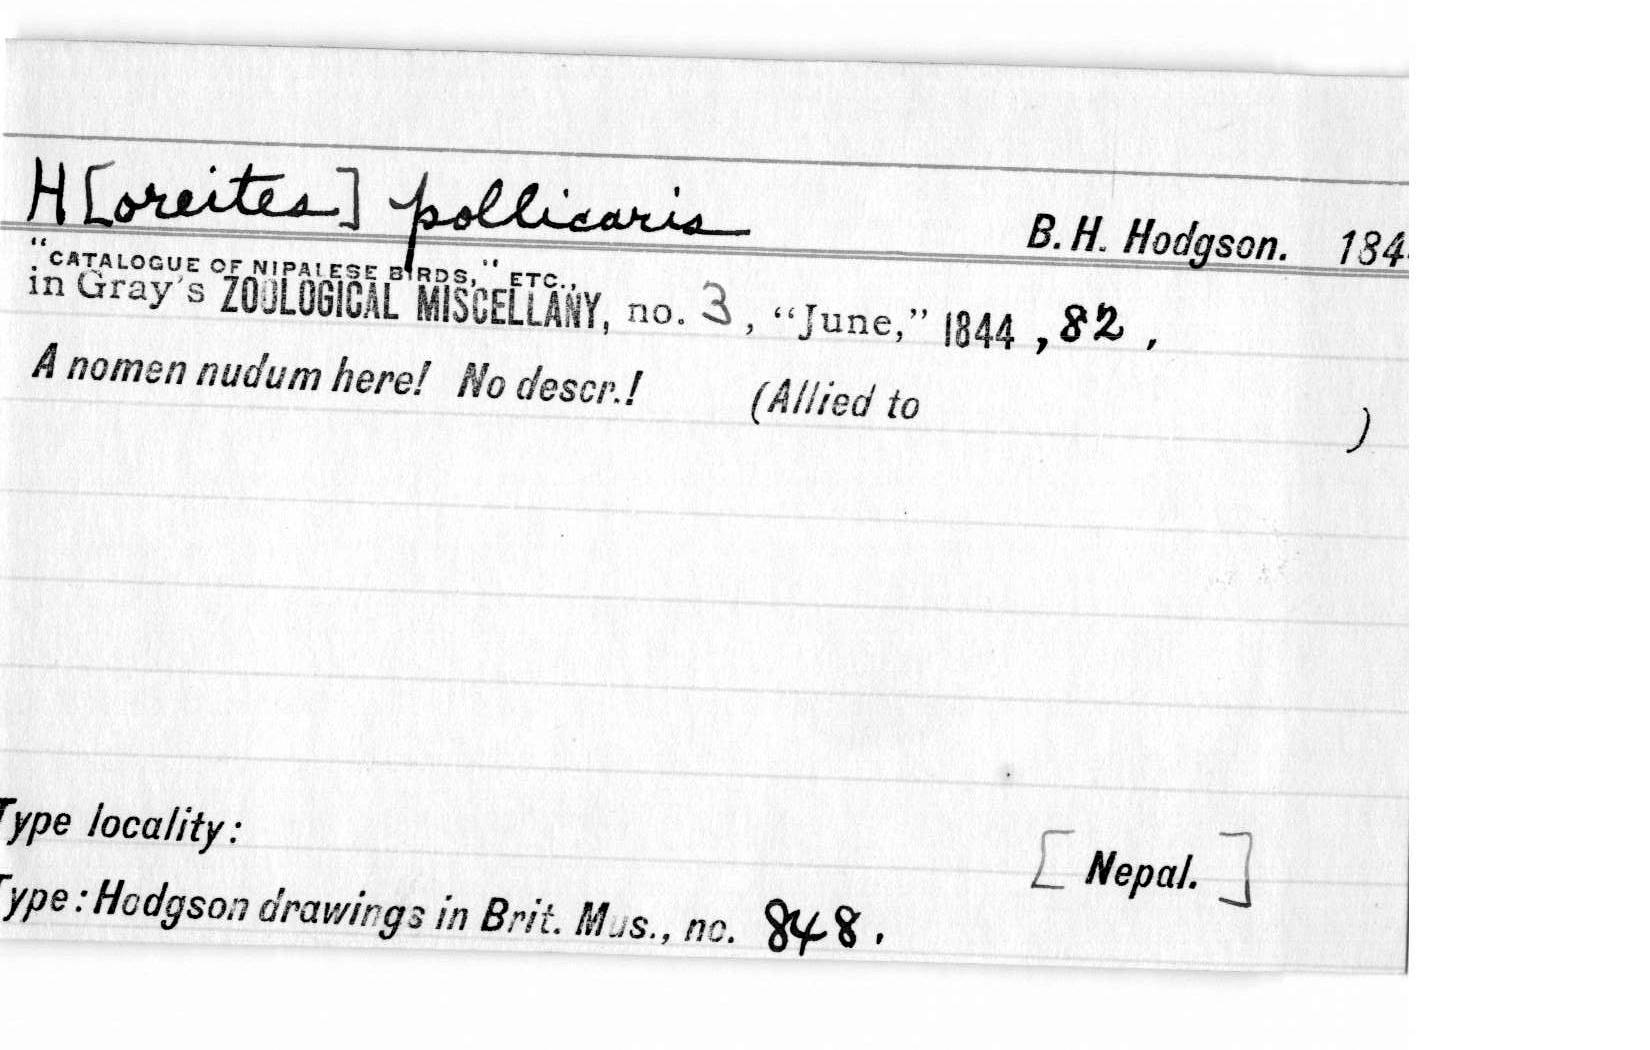 H[oreites] pollicaris B. H. Hodgson. 184
"CATALOGUE OF NIPALESE BIRDS," ETC.,
in Gray's ZOOLOGICAL MISCELLANY, no. 3, "June," 1844, 82.
A nomen nudum here! No descr.! (Allied to )
Type locality: [Nepal.]
Type: Hodgson drawings in Brit. Mus., no. 848.